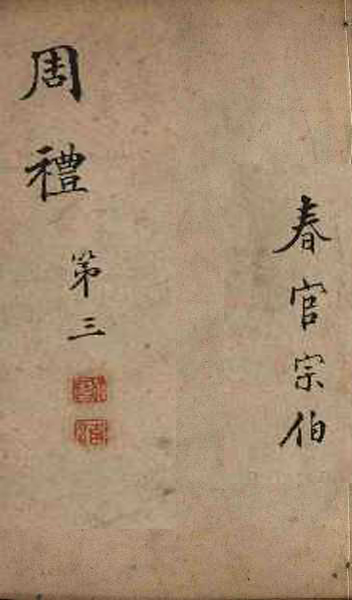 春官宗伯
周禮
第三